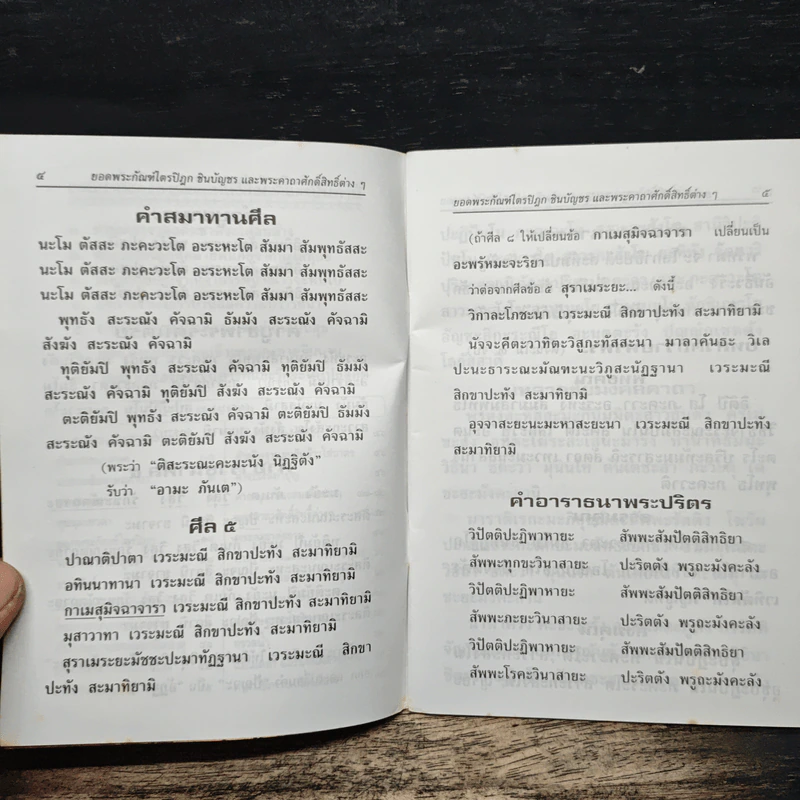 ๔ ยอดพระกัณฑ์ไตรปิฎก ชินบัญชร และพระคาถาศักดิ์สิทธิ์ต่าง ๆ
คำสมาทานศีล
นะโม ตัสสะ ภะคะวะโต อะระหะโต สัมมา สัมพุทธัสสะ
นะโม ตัสสะ ภะคะวะโต อะระหะโต สัมมา สัมพุทธัสสะ
นะโม ตัสสะ ภะคะวะโต อะระหะโต สัมมา สัมพุทธัสสะ
พุทธัง สะระณัง คัจฉามิ ธัมมัง สะระณัง คัจฉามิ
สังฆัง สะระณัง คัจฉามิ
ทุติยัมปิ พุทธัง สะระณัง คัจฉามิ ทุติยัมปิ ธัมมัง
สะระณัง คัจฉามิ ทุติยัมปิ สังฆัง สะระณัง คัจฉามิ
ตะติยัมปิ พุทธัง สะระณัง คัจฉามิ ตะติยัมปิ ธัมมัง
สะระณัง คัจฉามิ ตะติยัมปิ สังฆัง สะระณัง คัจฉามิ
(พระว่า “ติสะระณะคะมะนัง นิฏฐิตัง”
รับว่า “อามะ ภันเต”)
ศีล ๕
ปาณาติปาตา เวระมะณี สิกขาปะทัง สะมาทิยามิ
อทินนาทานา เวระมะณี สิกขาปะทัง สะมาทิยามิ
กาเมสุมิจฉาจารา เวระมะณี สิกขาปะทัง สะมาทิยามิ
มุสาวาทา เวระมะณี สิกขาปะทัง สะมาทิยามิ
สุราเมระยะมัชชะปะมาทัฏฐานา เวระมะณี สิกขา
ปะทัง สะมาทิยามิ
ยอดพระกัณฑ์ไตรปิฎก ชินบัญชร และพระคาถาศักดิ์สิทธิ์ต่าง ๆ ๕
(ถ้าศีล ๘ ให้เปลี่ยนข้อ กาเมสุมิจฉาจารา เปลี่ยนเป็น
อะพรัหมะจะริยา
ว่าต่อจากศีลข้อ ๕ สุราเมระยะ... ดังนี้
วิกาละโภชะนา เวระมะณี สิกขาปะทัง สะมาทิยามิ
นัจจะคีตะวาทิตะวิสูกะทัสสะนา มาลาคันธะ วิเล
ปะนะธาระณะมัณฑะนะวิภูสะนัฏฐานา เวระมะณี
สิกขาปะทัง สะมาทิยามิ
อุจจาสะยะนะมะหาสะยะนา เวระมะณี สิกขาปะทัง
สะมาทิยามิ
คำอาราธนาพระปริตร
วิปัตติปะฏิพาหายะ สัพพะสัมปัตติสิทธิยา
สัพพะทุกขะวินาสายะ ปะริตตัง พรูถะมังคะลัง
วิปัตติปะฏิพาหายะ สัพพะสัมปัตติสิทธิยา
สัพพะภะยะวินาสายะ ปะริตตัง พรูถะมังคะลัง
วิปัตติปะฏิพาหายะ สัพพะสัมปัตติสิทธิยา
สัพพะโรคะวินาสายะ ปะริตตัง พรูถะมังคะลัง